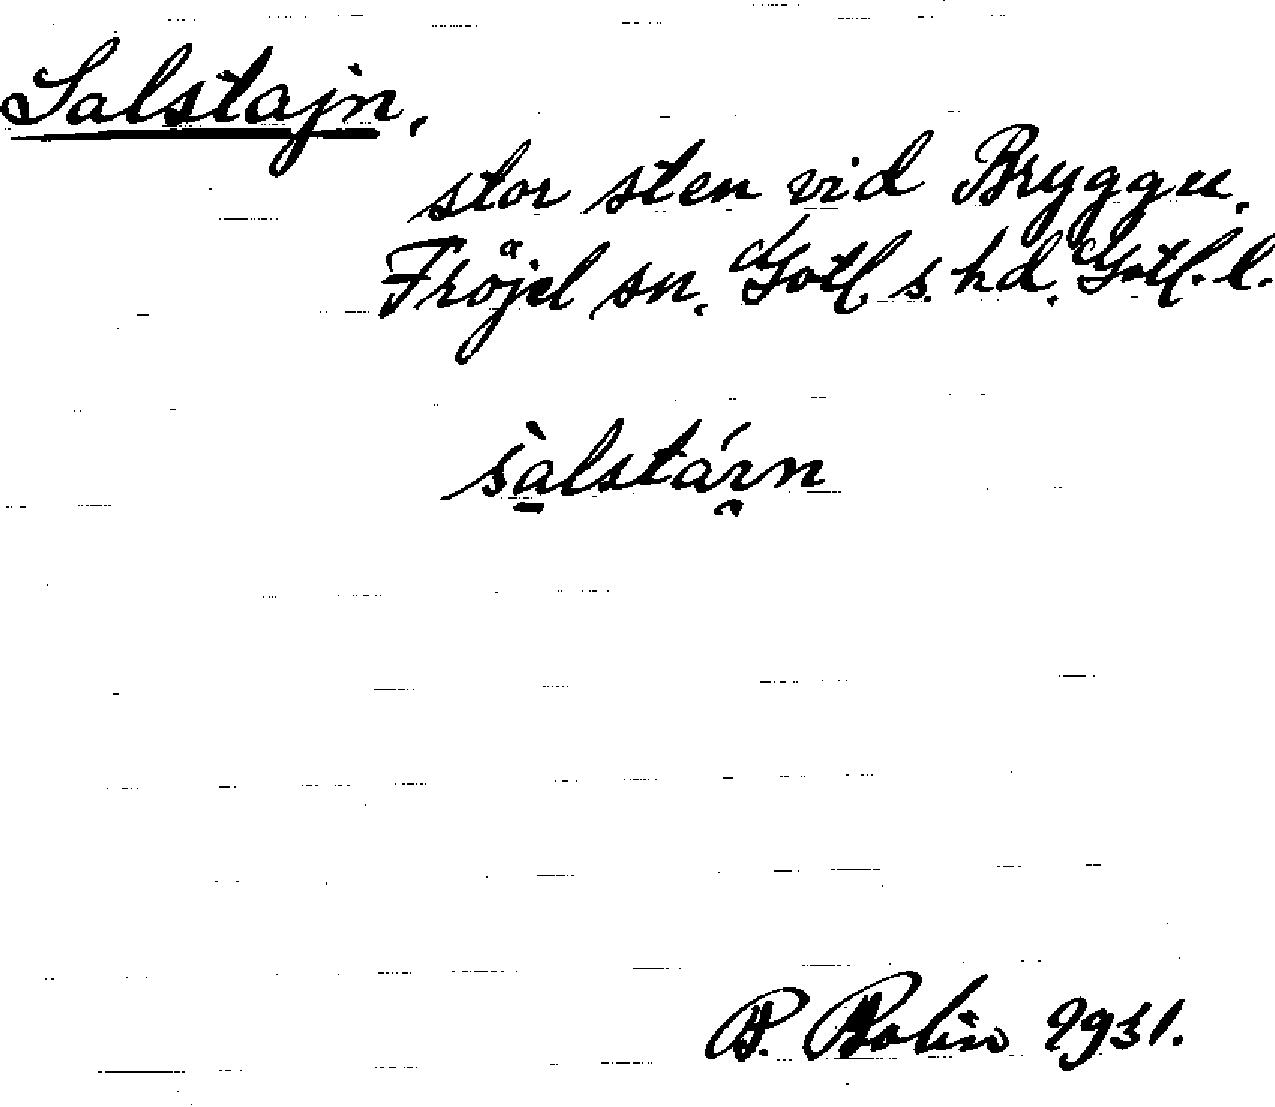 Salstajn.
stor sten vid Bryggu.
Fröjel sn. Gotl. s. hd. Gotl. l.
B. Bolin 1931.